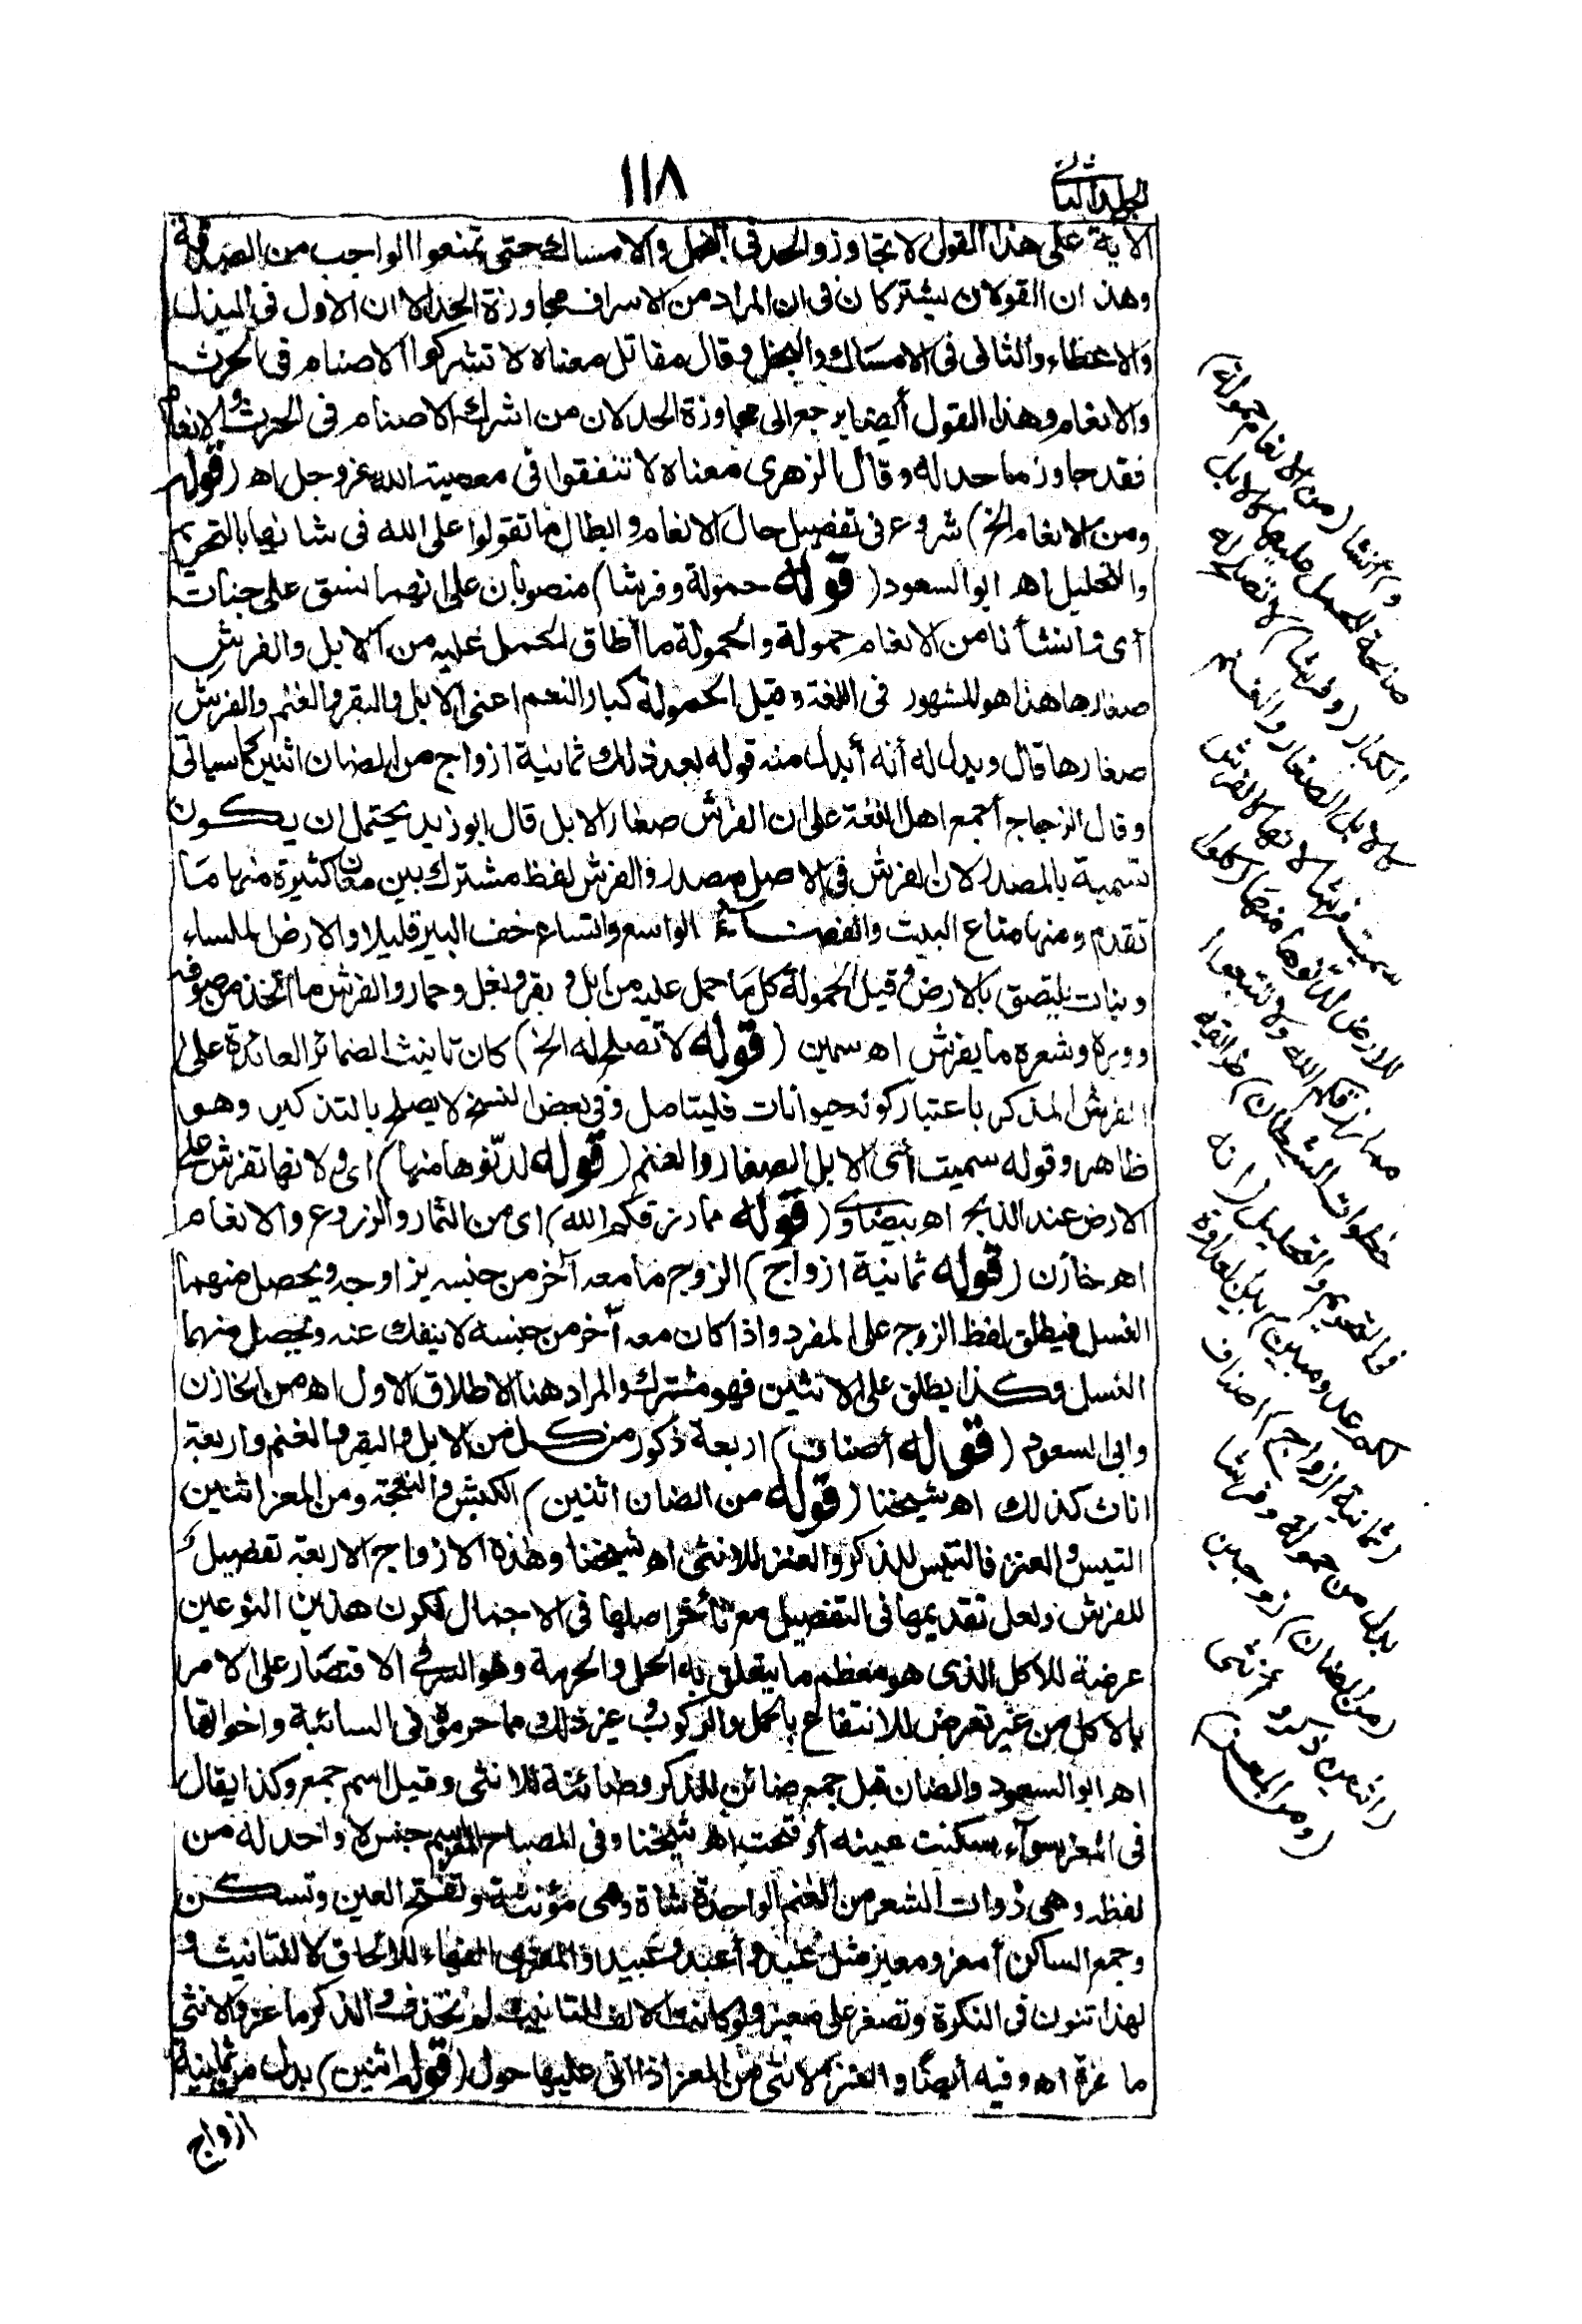 الجلد الثاني
١١٨
الآية على هذا القول لا تجاوزوا الحد في البخل والامساك حتى تمنعوا الواجب من الصدقة
وهذان القولان يشتركان في ان المراد من الاسراف مجاوزة الحد الا ان الاول في البذل
والاعطاء والثاني في الامساك والبخل وقال مقاتل معناه لا تشركوا الاصنام في الحرث
والانعام وهذا القول أيضا يرجع الى مجاوزة الحد لان من اشرك الاصنام في الحرث والانعام
فقد جاوز ما حد له وقال الزهري معناه لا تنفقوا في معصية الله عز وجل اه (قوله
ومن الانعام الخ) شروع في تفصيل حال الانعام وابطال ما تقولوا على الله في شانها بالتحريم
والتحليل اه ابو السعود (قوله حمولة وفرشا) منصوبان على انهما نسق على جنات
أى وانشأنا من الانعام حمولة والحمولة ما أطاق الحمل عليه من الابل والفرش
صغارها هذا هو المشهور في اللغة وقيل الحمولة كبار النعم اعنى الابل والبقر والغنم والفرش
صغارها قال ويدل له أنه أبدل منه قوله بعد ذلك ثمانية ازواج من الضان اثنين كما سياتى
وقال الزجاج أجمع اهل اللغة على ان الفرش صغار الابل قال ابو زيد يحتمل ان يكون
تسمية بالمصدر لان الفرش في الاصل مصدر والفرش لفظ مشترك بين معان كثيرة منها ما
تقدم ومنها متاع البيت والفضاء الواسع واتساع خف البعير قليلا والارض الملساء
ونبات يلتصق بالارض وقيل الحمولة كل ما حمل عليه من ابل وبقر وبغل وحمار والفرش ما اتخذ من صوفه
ووبره وشعره ما يفرش اه سمين (قوله لا تصلح له الخ) كان تانيث الضمائر العائدة على
الفرش المذكر باعتبار كونه حيوانات فليتامل وفي بعض النسخ لا يصلح بالتذكير وهو
ظاهر وقوله سميت أى الابل الصغار والغنم (قوله لدنوها منها) اى ولانها تفرش على
الارض عند الذبح اه بيضاوى (قوله مما رزقكم الله) اى من الثمار والزروع والانعام
اه خازن (قوله ثمانية ازواج) الزوج ما معه آخر من جنسه يزاوجه ويحصل منهما
النسل فيطلق لفظ الزوج على المفرد واذا كان معه آخر من جنسه لا ينفك عنه ويحصل منهما
النسل وكذا يطلق على الاثنين فهو مشترك والمراد هنا الاطلاق الاول اه من الخازن
وابى السعود (قوله أصناف) اربعة ذكور من كل من الابل والبقر والغنم واربعة
اناث كذلك اه شيخنا (قوله من الضان اثنين) الكبش والنعجة ومن المعز اثنين
التيس والعنز فالتيس للذكر والعنز للانثى اه شيخنا وهذه الازواج الاربعة تفصيل
للفرش ولعل تقديمها في التفصيل مع تأخر اصلها في الاجمال لكون هذين النوعين
عرضة للاكل الذى هو معظم ما يتعلق به الحل والحرمة وهو السر في الاقتصار على الامر
بالاكل من غير تعرض للانتفاع بالحمل والركوب وغير ذلك مما حرموه في السائبة واخواتها
اه ابو السعود والضان قيل جمع ضائن للذكر وضائنة للانثى وقيل اسم جمع وكذا يقال
في المعز سواء سكنت عينه أو فتحت اه شيخنا وفي المصباح المعز اسم جنس لا واحد له من
لفظه وهى ذوات الشعر من الغنم الواحدة شاة وهى مؤنثة وتفتح العين وتسكن
وجمع الساكن أمعز ومعيز مثل عبد وأعبد وعبيد والمعزى الفها للالحاق لا للتانيث و
لهذا تنون في النكرة وتصغر على معيز ولو كانت الالف للتانيث لم تحذف والذكر ماعز والانثى
ماعزة اه وفيه أيضا والعنز الانثى من المعز اذا اتى عليها حول (قوله اثنين) بدل من ثمانية
ازواج
و) أنشأ (من الانعام حمولة)
صالحة للحمل عليها كالابل
الكبار (وفرشا) لا تصلح له
كالابل الصغار والغنم
سميت فرشا لانها كالفرش
للارض لدنوها منها (كلوا
مما رزقكم الله ولا تتبعوا
خطوات الشيطان) طرائقه
في التحريم والتحليل (انه
لكم عدو مبين) بين العداوة
(ثمانية ازواج) اصناف
بدل من حمولة وفرشا
(من الضان) زوجين
(اثنين) ذكر وانثى
(ومن المعز)